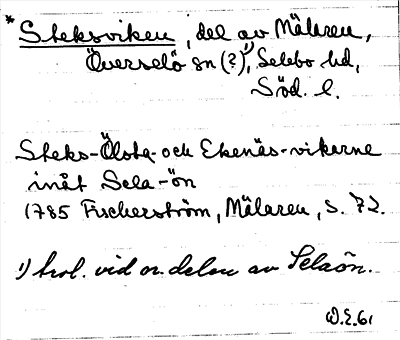 * Steksviken, del av Mälaren,
Överselö sn (?)¹⁾, Selebo hd,
Söd. l.
Steks-Ölsta- och Ekenäs-vikarne
inåt Sela-ön
1785 Fischerström, Mälaren, s. 72.
¹⁾ trol. vid ö. delen av Selaön.
D.E. 61